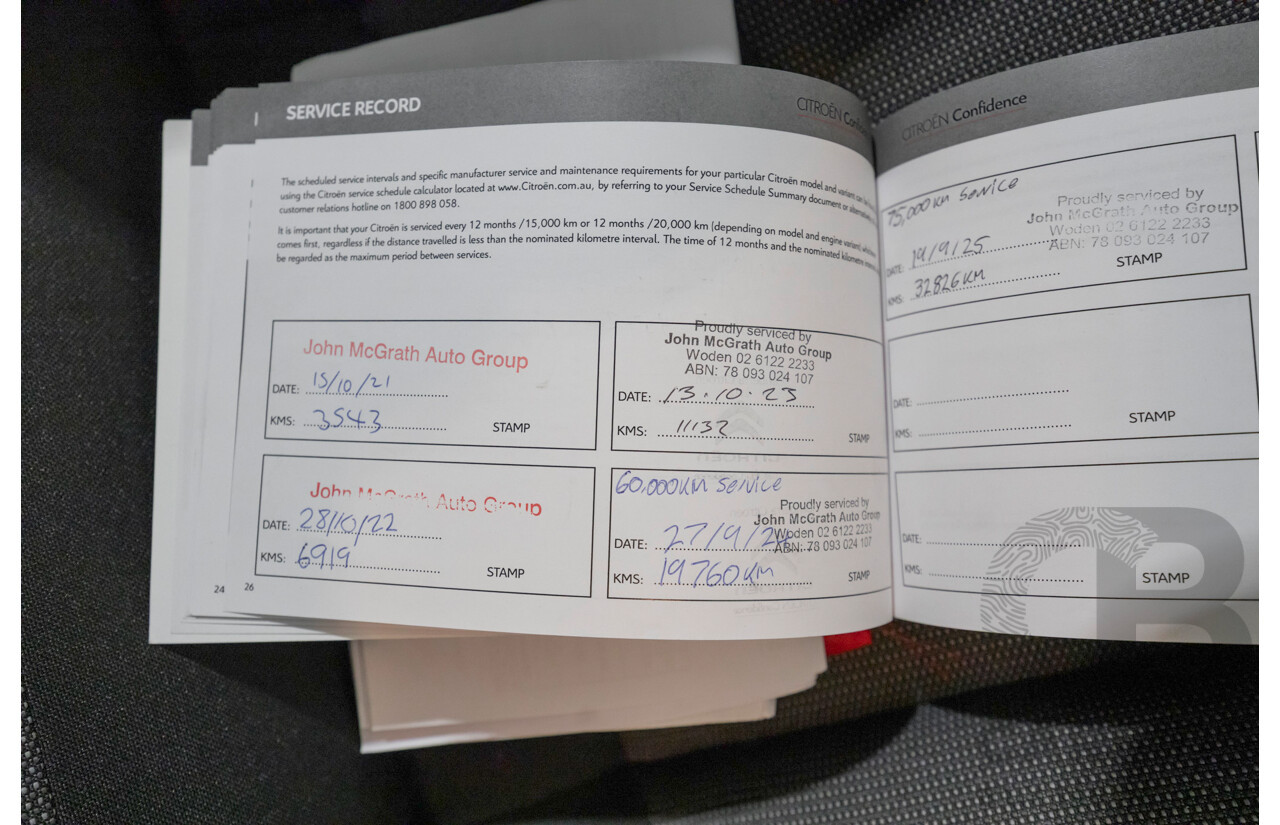 SERVICE RECORD
CITROËN
The scheduled service intervals and specific manufacturer service and maintenance requirements for your particular Citroën model and variant can be
using the Citroën service schedule calculator located at www.Citroën.com.au, by referring to your Service Schedule Summary document or
customer relations hotline on 1800 898 058.
It is important that your Citroën is serviced every 12 months /15,000 km or 12 months /20,000 km (depending on model and engine variant)
comes first, regardless if the distance travelled is less than the nominated kilometre interval. The time of 12 months and the nominated kilometre
be regarded as the maximum period between services.
John McGrath Auto Group
DATE: 15/10/21
KMS: 3543
STAMP
Proudly serviced by
John McGrath Auto Group
Woden 02 6122 2233
ABN: 78 093 024 107
DATE: 13.10.23
KMS: 11132
STAMP
John McGrath Auto Group
DATE: 28/10/22
KMS: 6919
STAMP
60,000KM Service
Proudly serviced by
John McGrath Auto Group
Woden 02 6122 2233
ABN: 78 093 024 107
DATE: 27/9/24
KMS: 19760KM
STAMP
24 26
CITROËN Confidence
75,000KM Service
Proudly serviced by
John McGrath Auto Group
Woden 02 6122 2233
ABN: 78 093 024 107
DATE: 19/9/25
KMS: 32826KM
STAMP
DATE:
KMS:
STAMP
DATE:
KMS:
STAMP